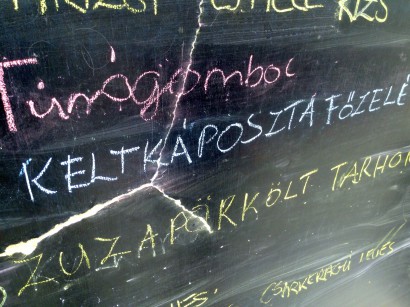 RIZS
Túrógomboc
KELTKÁPOSZTA FŐZELÉ
ZUZA PÖRKÖLT TARHO
CSIRKERAGÚ LEVES